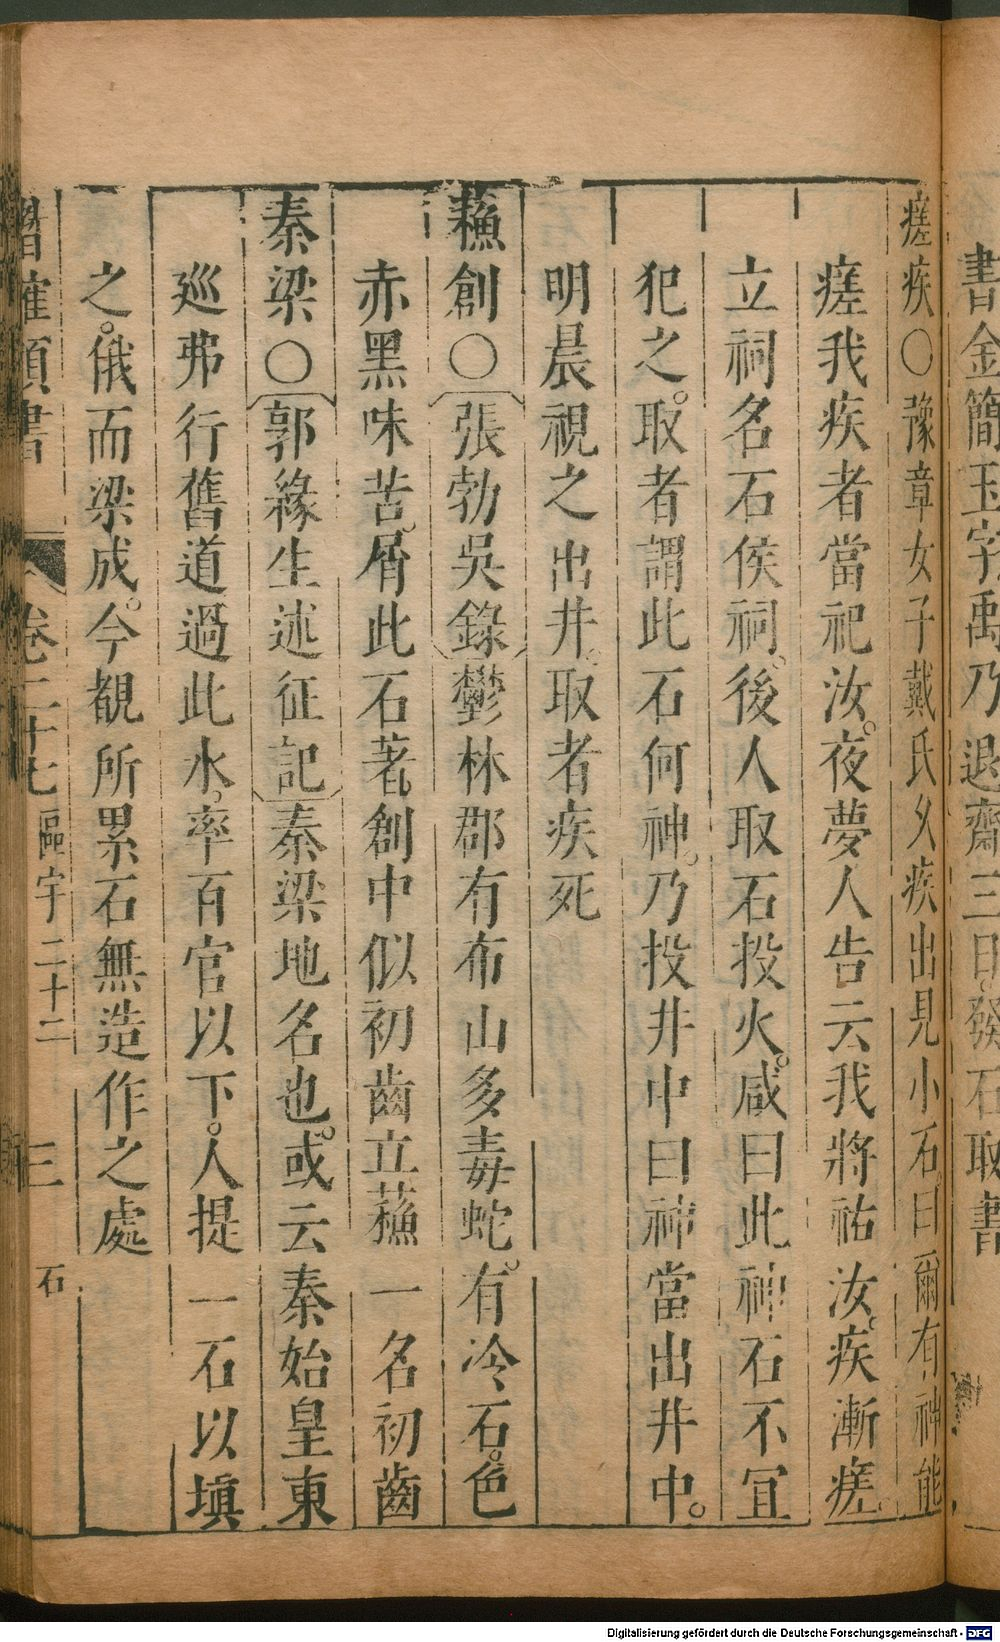 書金簡玉字禹乃退齋三日發石取書
瘥疾〇豫章女子戴氏久疾出見小石曰爾有神能
瘥我疾者當祀汝夜夢人告云我將祐汝疾漸瘥
立祠名石侯祠後人取石投火咸曰此神石不宜
犯之取者謂此石何神乃投井中曰神當出井中
明晨視之出井取者疾死
蘓創〇張勃吳錄鬱林郡有布山多毒蛇有冷石色
赤黑味苦屑此石著創中似初齒立蘓一名初齒
秦梁〇郭緣生述征記秦梁地名也或云秦始皇東
巡弗行舊道過此水率百官以下人提一石以填
之俄而梁成今覩所累石無造作之處
潛確類書 卷二十七 區宇二十二 三 石
Digitalisierung gefördert durch die Deutsche Forschungsgemeinschaft - DFG